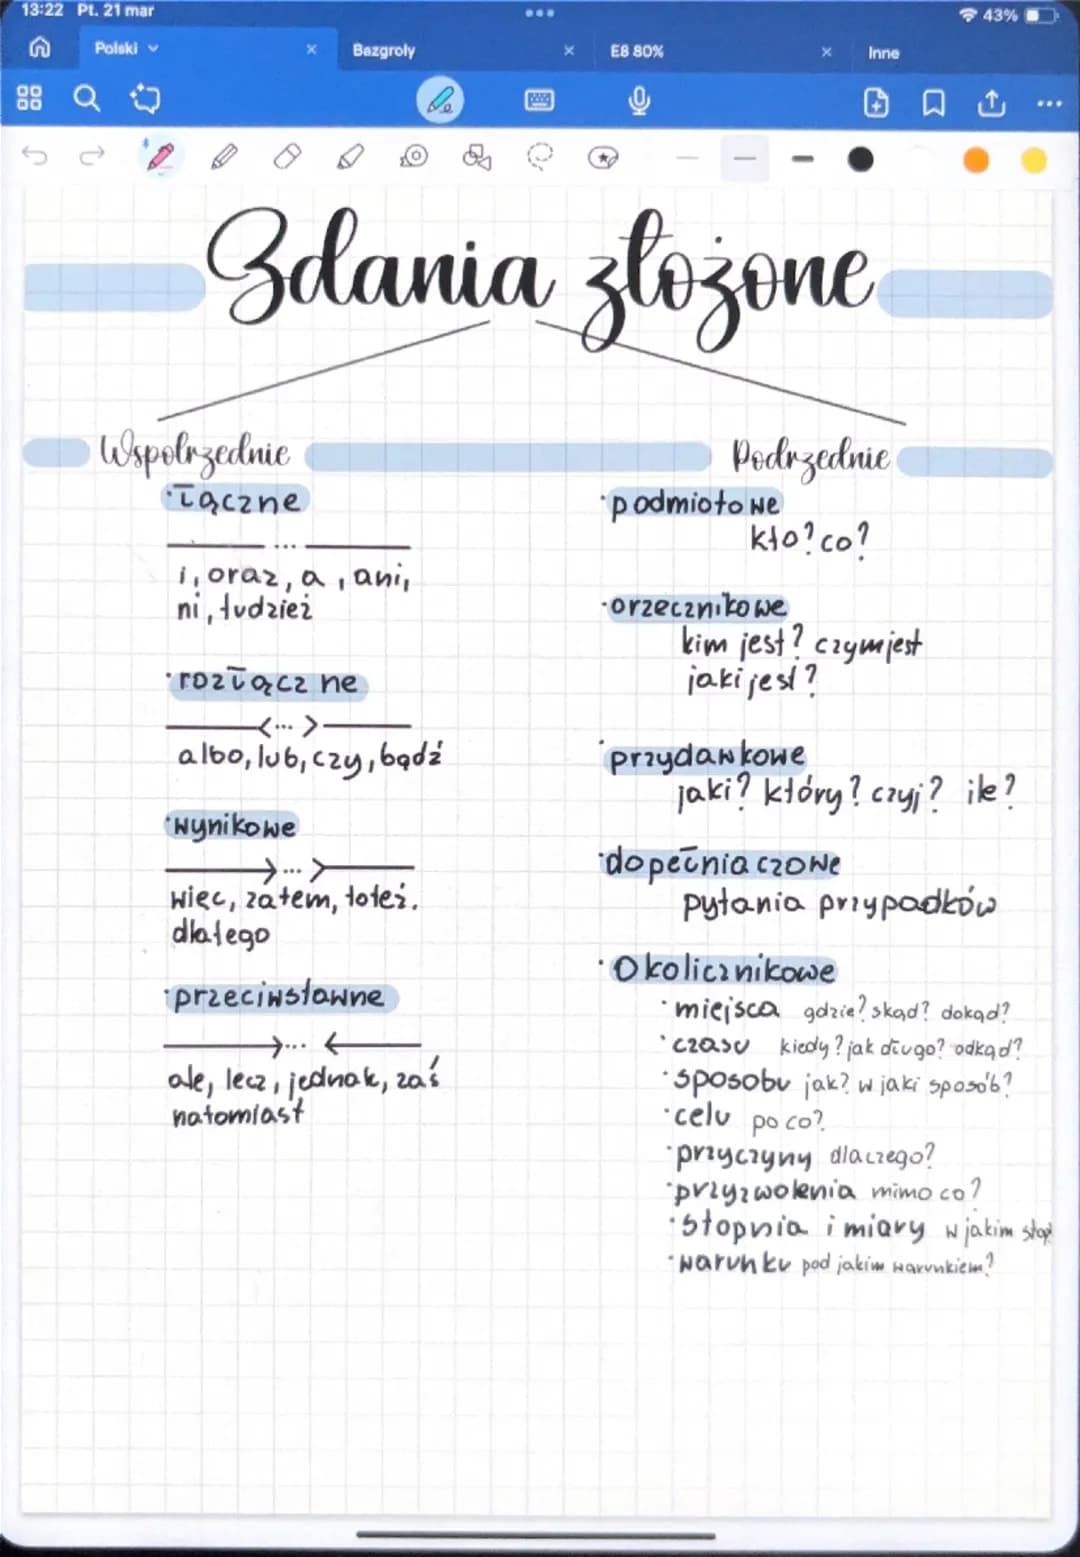 13:22 Pt. 21 mar
43%
Polski
Bazgroły
E8 80%
Inne
Zdania złożone
Współrzędnie
·łączne
...
i, oraz, a, ani,
ni, tudzież
·rozłączne
<...>
albo, lub, czy, bądź
·wynikowe
→...>
więc, zatem, toteż.
dlatego
·przeciwstawne
→...←
ale, lecz, jednak, zaś
natomiast
Podrzędnie
·podmiotowe
kto? co?
·orzecznikowe
kim jest? czym jest
jaki jest?
·przydawkowe
jaki? który? czyj? ile?
·dopełniaczowe
pytania przypadków
·Okolicznikowe
·miejsca gdzie? skąd? dokąd?
·czasu kiedy? jak długo? odkąd?
·sposobu jak? w jaki sposób?
·celu po co?
·przyczyny dlaczego?
·przyzwolenia mimo co?
·stopnia i miary w jakim stop?
·warunku pod jakim warunkiem?